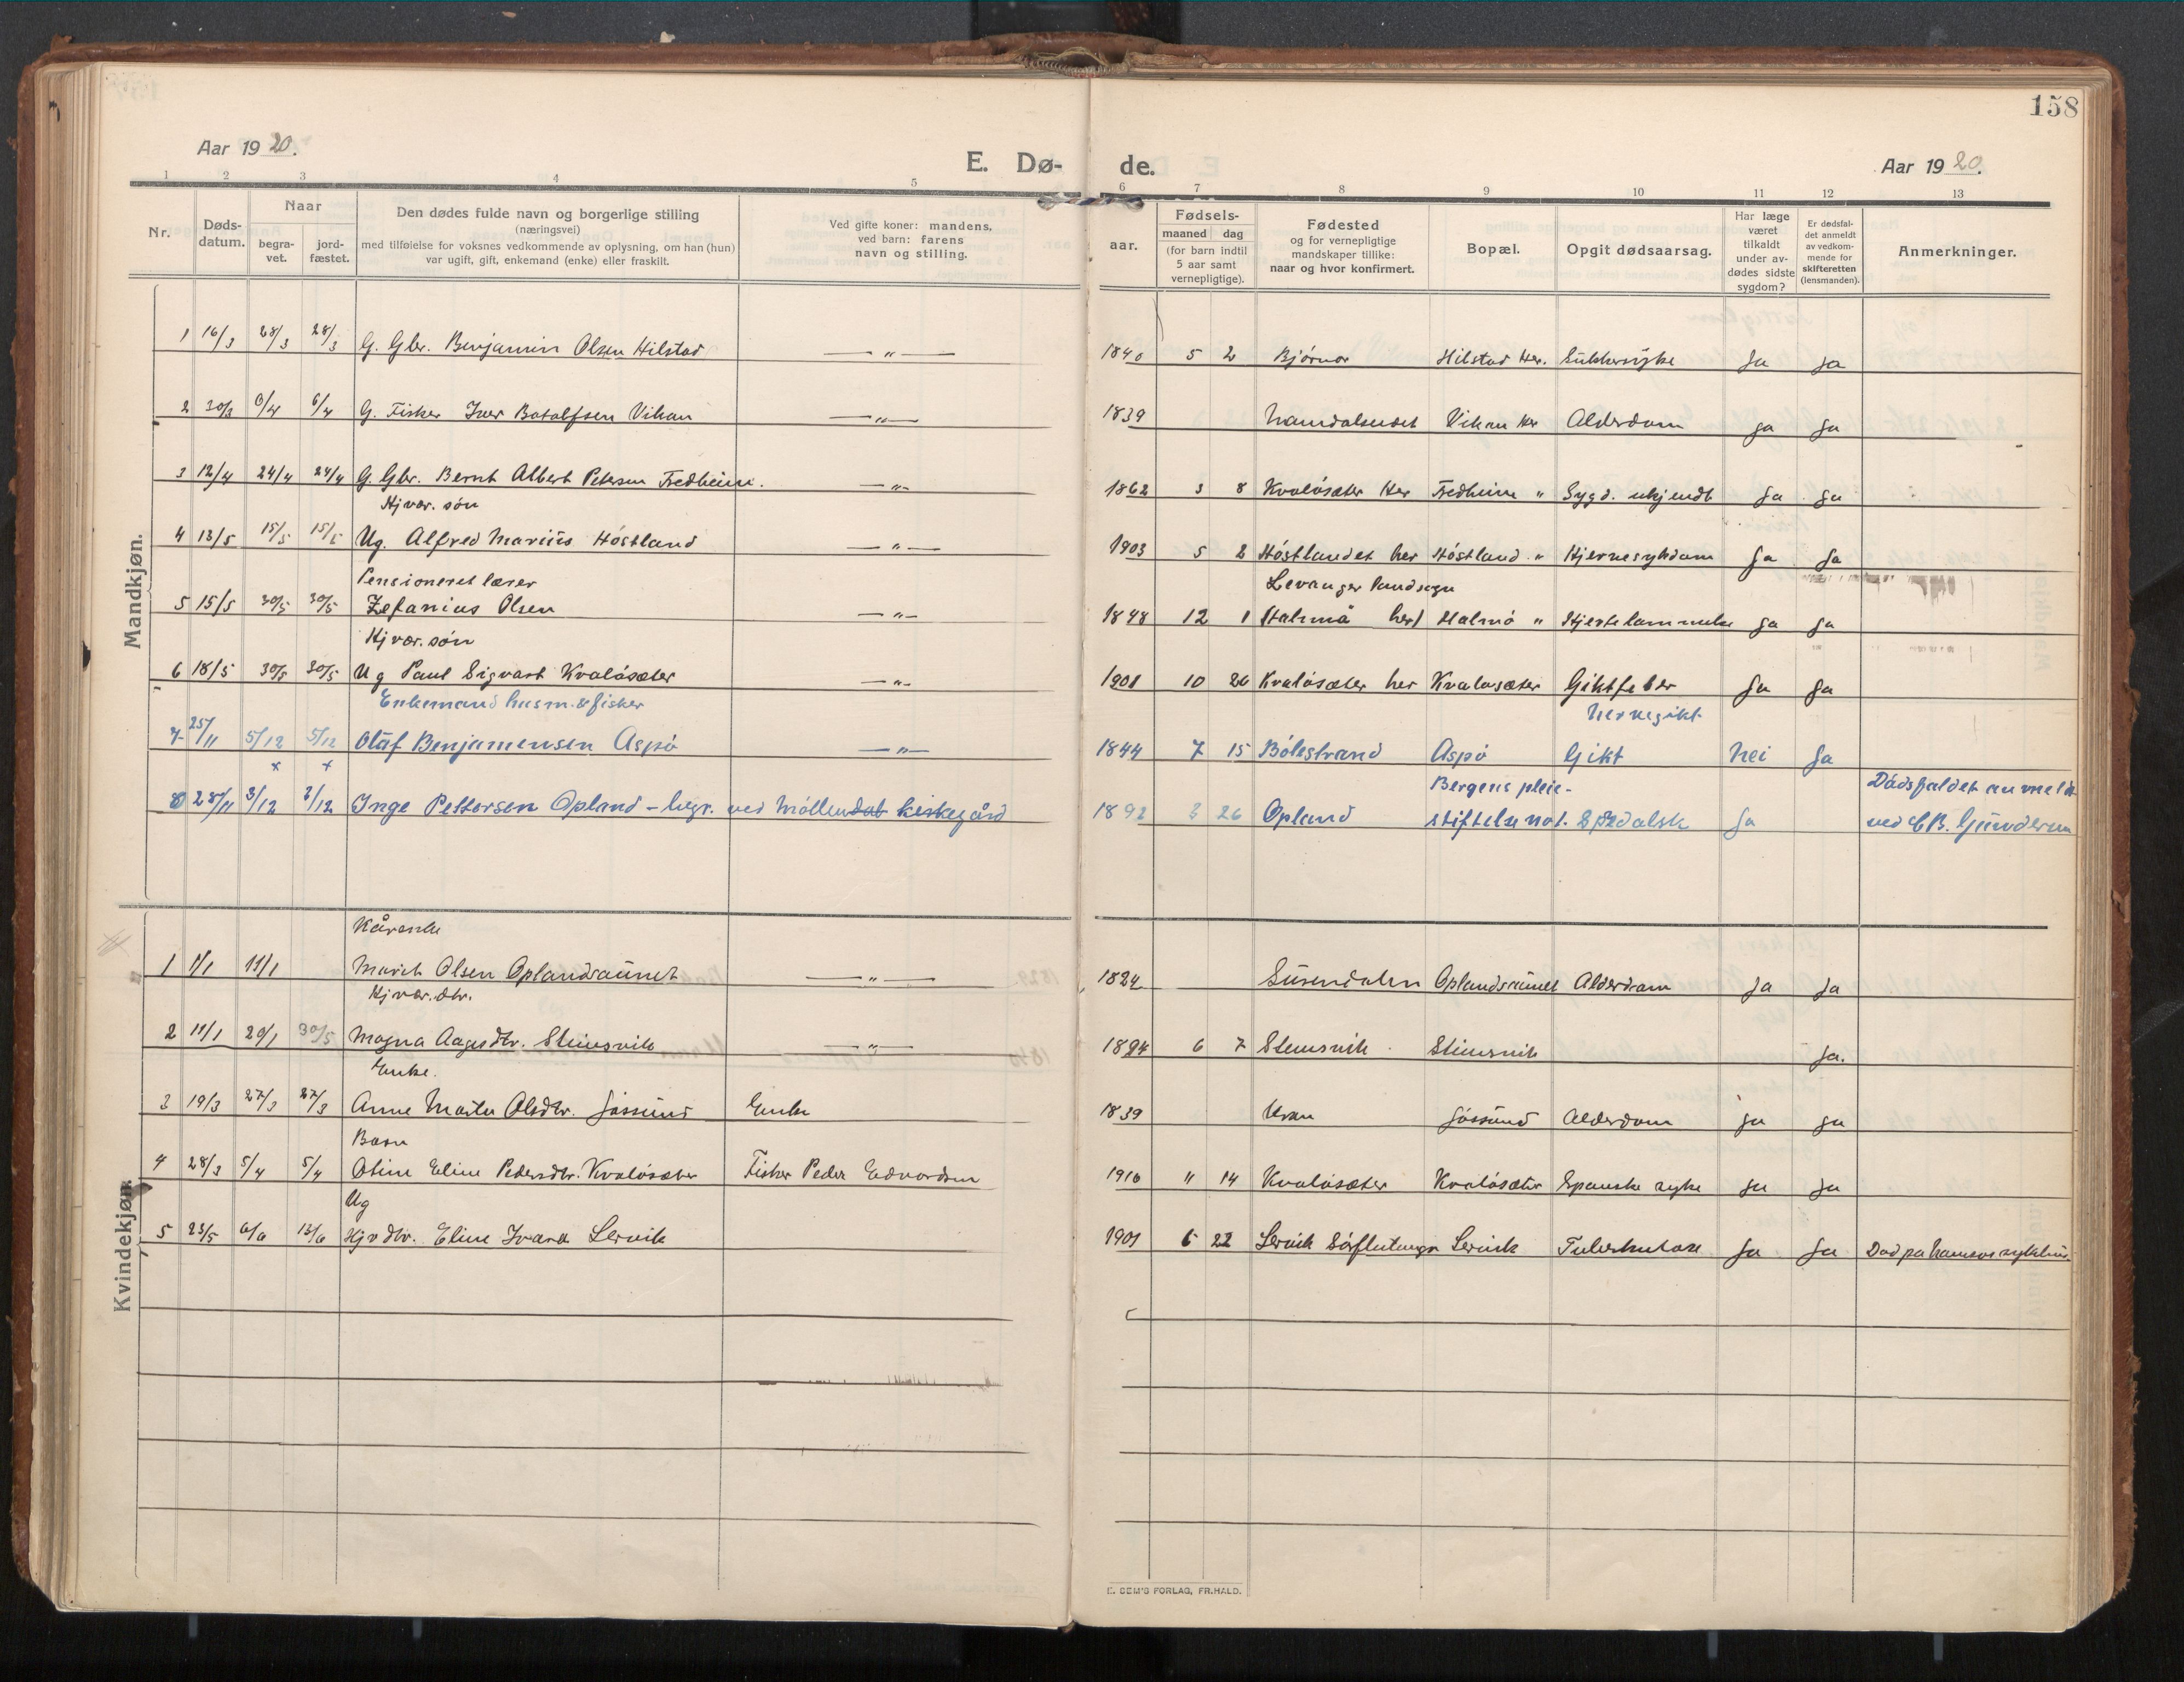 158
Aar 1920.
E. Dø-
de.
Aar 1920.
1 2 3 4 5 6 7 8 9 10 11 12 13
Nr.
Døds-
datum.
Naar
begra-
vet.
jord-
fæstet.
Den dødes fulde navn og borgerlige stilling
(næringsvei)
med tilføielse for voksnes vedkommende av oplysning, om han (hun)
var ugift, gift, enkemand (enke) eller fraskilt.
Ved gifte koner: mandens,
ved barn: farens
navn og stilling.
aar.
Fødsels-
maaned dag
(for barn indtil
5 aar samt
vernepligtige).
Fødested
og for vernepligtige
mandskaper tillike:
naar og hvor konfirmert.
Bopæl.
Opgit dødsaarsag.
Har læge
været
tilkaldt
under av-
dødes sidste
sygdom?
Er dødsfal-
det anmeldt
av vedkom-
mende for
skifteretten
(lensmanden).
Anmerkninger.
Mandkjøn.
1 16/3 28/3 28/3 G. Gbr. Benjamin Olsen Hilstad — " — 1840 5 2 Bjørnør Hilstad her. Sukkersyke Ja Ja
2 30/3 6/4 6/4 G. Fisker Iver Botolfsen Vikan — " — 1839 Namdalseidet Vikan her Alderdom Ja Ja
3 12/4 24/4 24/4 G. Gbr. Bernt Albert Petersen Fredheim. — " — 1862 3 8 Kvaløsæter her Fredheim " Sygd. ukjendt Ja Ja
Hjvær. søn
4 13/5 15/5 15/5 Ug. Alfred Marius Høstland — " — 1903 5 2 Høstlandet her Høstland " Hjernesykdom Ja Ja
Pensioneret lærer Levanger landsogn
5 15/5 30/5 30/5 Zefanius Olsen — " — 1848 12 1 (Halmø her) Halmø " Hjertelammelse Ja Ja
Hjvær. søn
6 18/5 30/5 30/5 Ug Paul Sigvart Kvaløsæter — " — 1901 10 26 Kvaløsæter her Kvaløsæter Giktfeber Ja Ja
Enkemand husm. & fisker Nervegikt
7 25/11 5/12 5/12 Olaf Benjamensen Aspø — " — 1844 7 15 Bølestrand Aspø Gikt Nei Ja
x x Bergens pleie- Dødsfaldet anmeldt
8 28/11 3/12 3/12 Inge Pettersen Opland - begr. ved Møllendal kirkegård 1892 3 26 Opland stiftelse no 1. Spedalsk Ja ved C.B. Gundersen
Kvindekjøn.
Kårenke
1 1/1 11/1 Marit Olsen Oplandsaunet — " — 1824 Surendalen Oplandsaunet Alderdom Ja Ja
Hjvær. dtr.
2 11/1 20/1 30/5 Magna Aagesdtr. Stensvik — " — 1894 6 7 Stensvik Stensvik Ja.
Enke.
3 19/3 27/3 27/3 Anne Marta Olsdtr. Jøssund Enke 1839 Uran Jøssund Alderdom Ja Ja
Barn
4 28/3 5/4 5/4 Otine Eline Pedersdtr. Kvaløsæter Fisker Peder Edvardsen 1916 " 14 Kvaløsæter Kvaløsæter Spanske syke Ja Ja
Ug
5 23/5 6/6 13/6 Hjv dtr. Eline Ivara Lervik 1901 6 22 Lervik Lervik Tuberkulose Ja Ja Død på Namsos sykehus.
E. SEM'S FORLAG, FR.HALD.